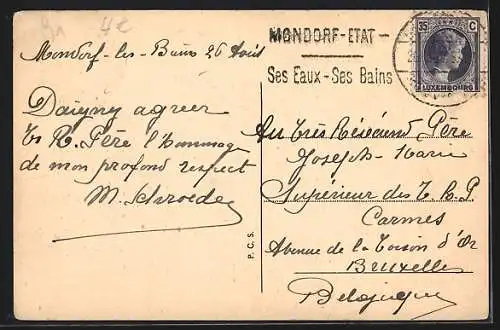 4€
MONDORF-ETAT-
Ses Eaux-Ses Bains
35 C
LUXEMBOURG
Mondorf-les-Bains 26 Août
Daigny agreer
Ts R. Père l'hommage
de mon profond respect
M. Schroeder
P.C.S.
Au Très Révérend Père
Joseph-Marie
Supérieur des T. R. P
Carmes
Avenue de la Toison d'Or
Bruxelles
Belgique